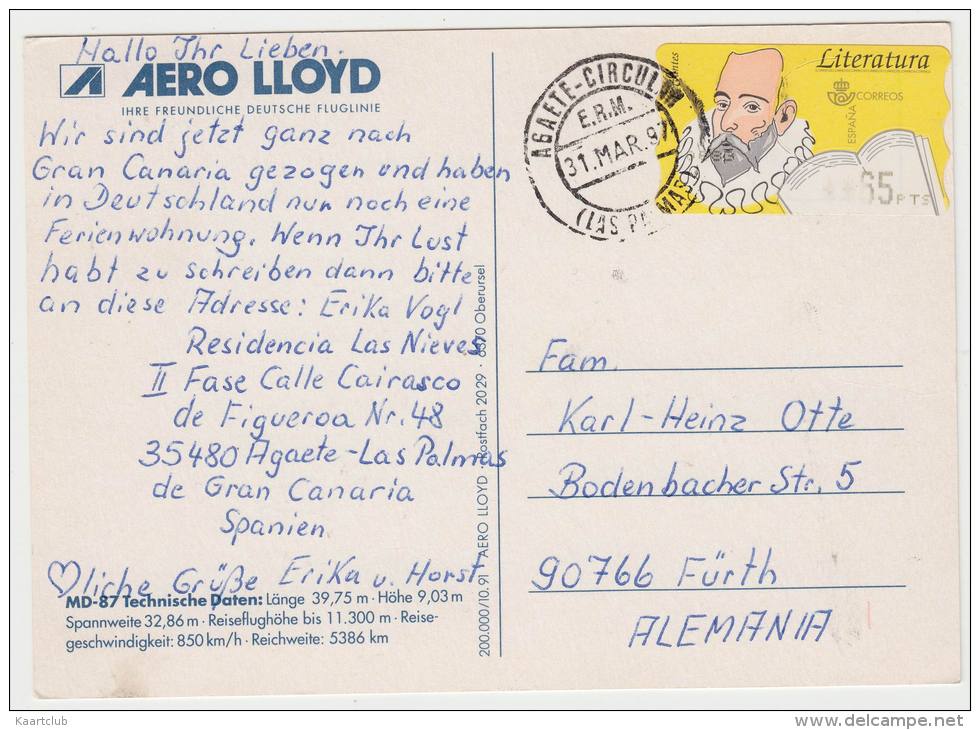 Hallo Ihr Lieben.
AERO LLOYD
IHRE FREUNDLICHE DEUTSCHE FLUGLINIE
Wir sind jetzt ganz nach
Gran Canaria gezogen und haben
in Deutschland nur noch eine
Ferienwohnung. Wenn Ihr Lust
habt zu schreiben dann bitte
an diese Adresse: Erika Vogl
Residencia Las Nieves
II Fase Calle Cairasco
de Figueroa Nr. 48
35480 Agaete-Las Palmas
de Gran Canaria
Spanien
♡liche Grüße Erika u. Horst
MD-87 Technische Daten: Länge 39,75 m · Höhe 9,03 m
Spannweite 32,86 m · Reiseflughöhe bis 11.300 m · Reise-
geschwindigkeit: 850 km/h · Reichweite: 5386 km
200.000/10.91 AERO LLOYD · Postfach 2029 · 6370 Oberursel
AGAETE-CIRCULAR
E.R.M.
31.MAR.97
(LAS PALMAS)
Literatura
CORREOS
ESPAÑA
**65 PTS
Fam.
Karl-Heinz Otte
Bodenbacher Str. 5
90766 Fürth
ALEMANIA
Kaartclub
www.delcampe.net